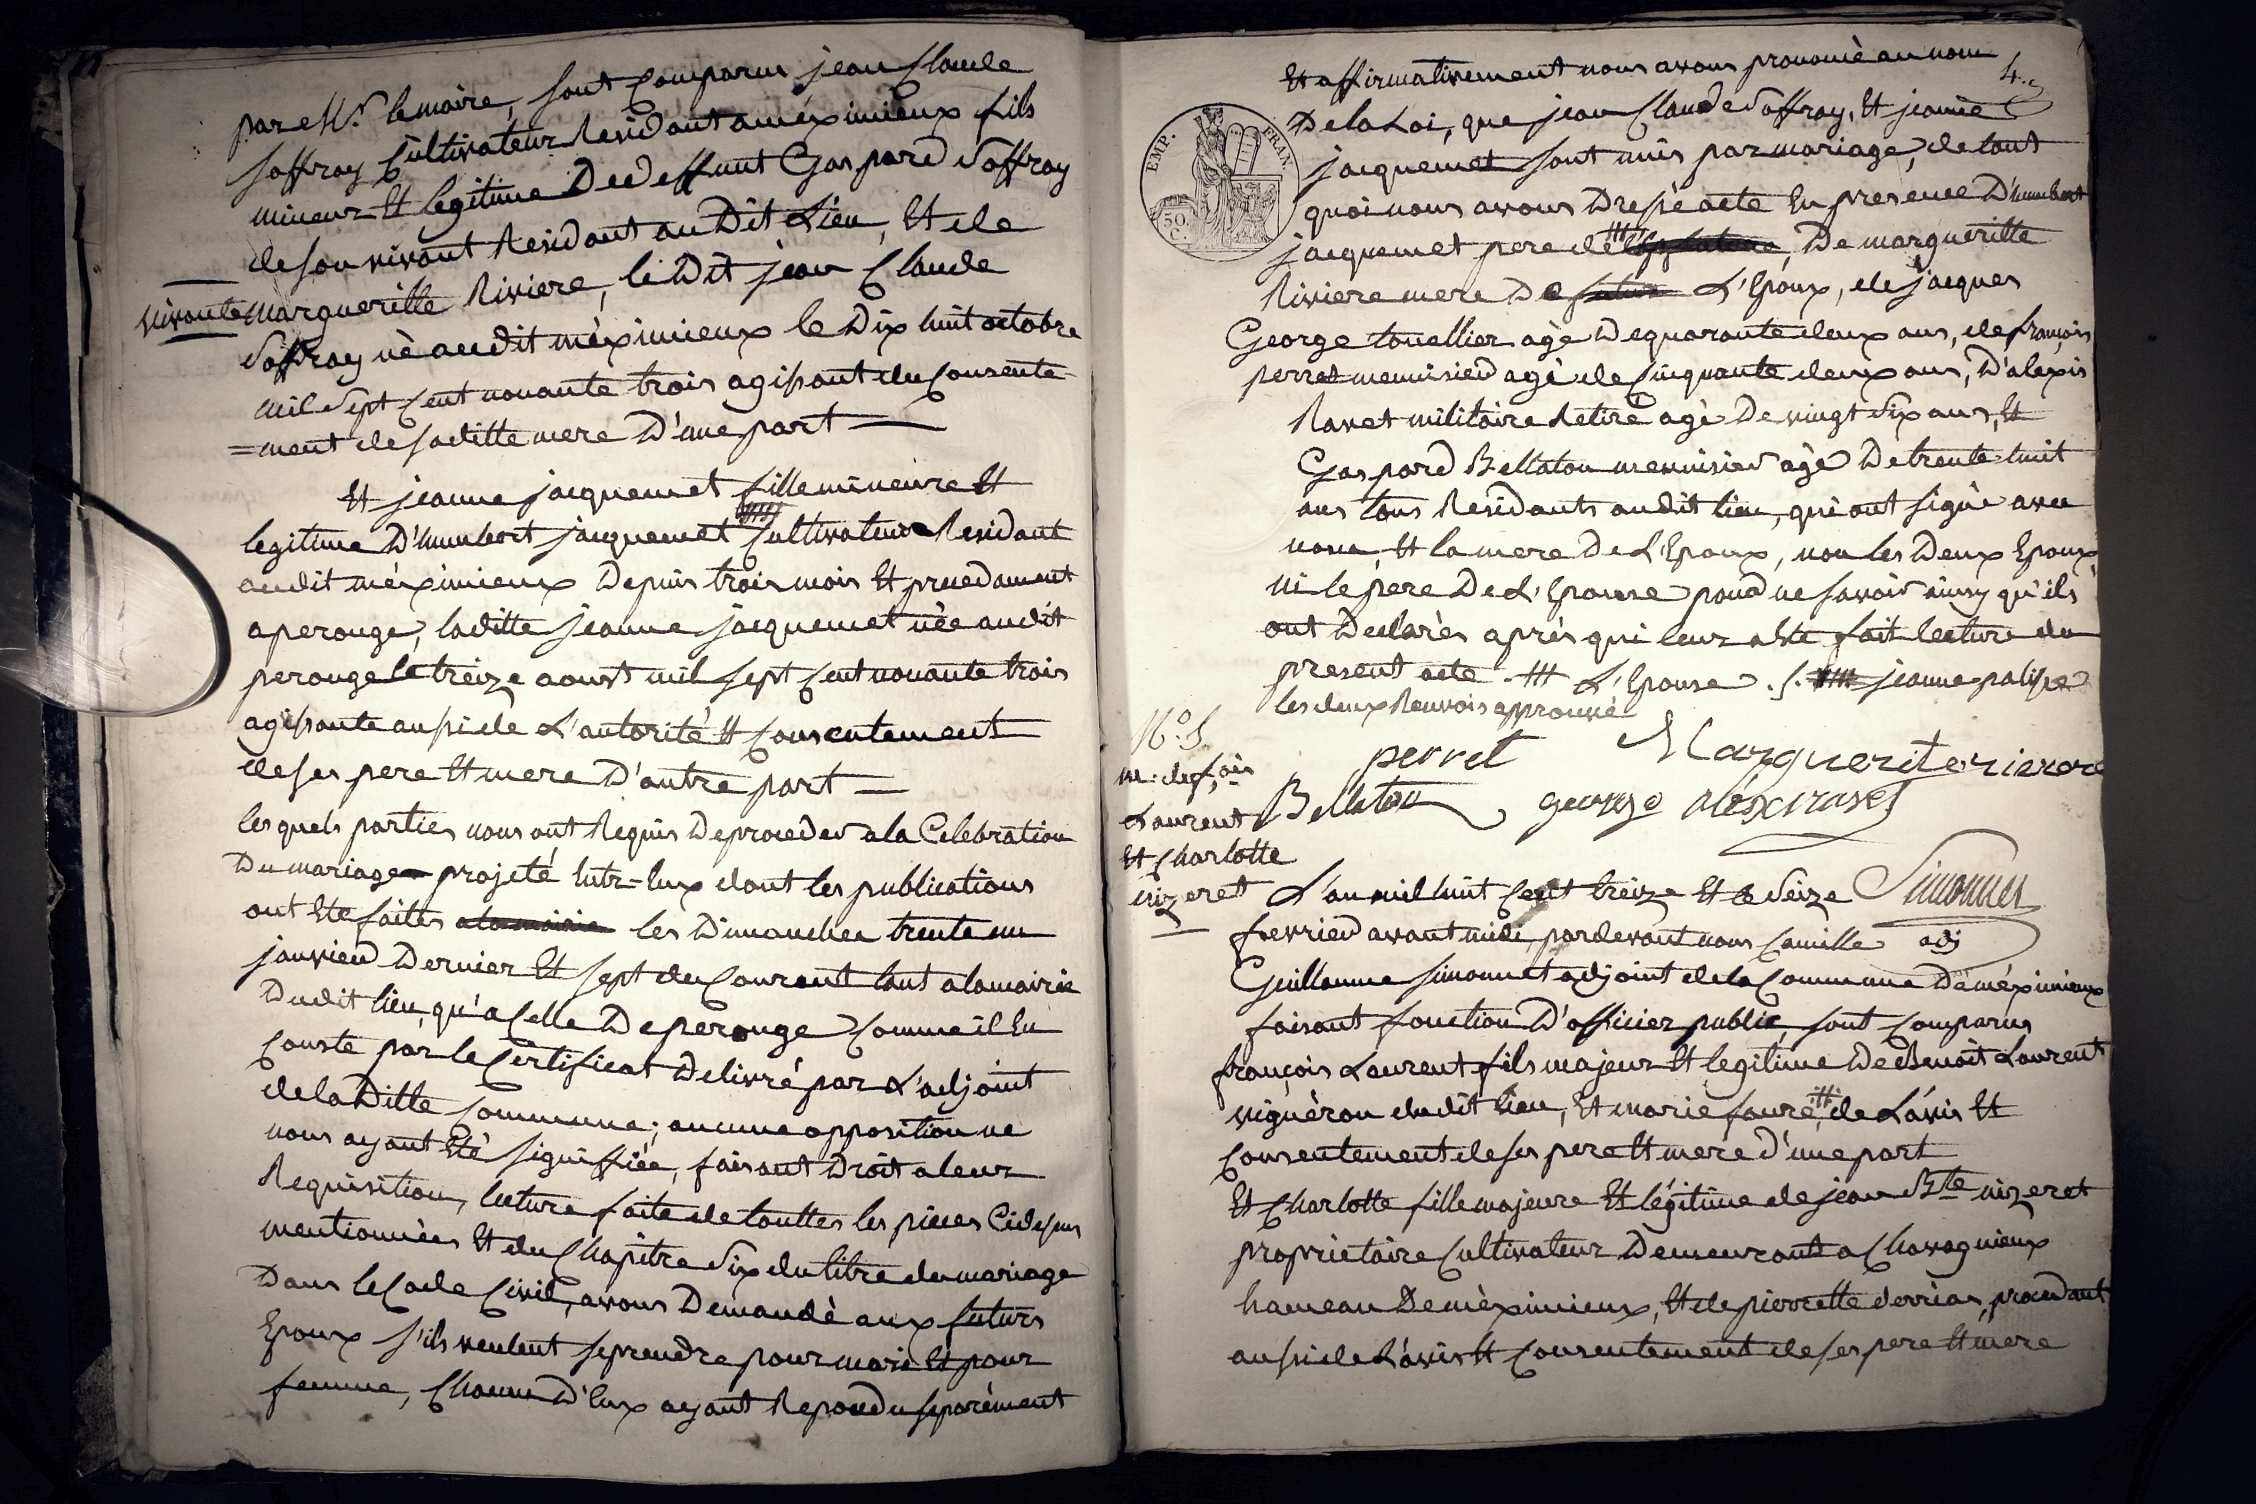 par Mr. le maire, sont Comparus jean Claude
Soffray Cultivateur Residant a méximieux fils
mineur Et legitime De deffunt Gaspard Soffray
de son vivant Residant au Dit Lieu, Et de
vivante
Margueritte Riviere, le Dit jean Claude
Soffray né audit méximieux le Dix huit octobre
mil Sept Cent nonante trois agissant du Consente
=ment de saditte mere D'une part
Et jeanne jacquemet fille mineure Et
legitime D'humbert jacquemet Cultivateur Residant
audit méximieux Depuis trois mois Et precedament
a perouge, laditte jeanne jacquemet née audit
perouge le treize aoust mil sept Cent nonante trois
agissante aussi de L'autorité Et Consentement
de ses pere Et mere D'autre part
les quels parties nous ont Requis De proceder a la Celebration
Du mariage projeté Entr-Eux dont les publications
ont Eté faites a la mairie les Dimanches trente un
janvier Dernier Et sept du Courant tant a la mairie
Dudit lieu, qu'a Celle De perouge Comme il En
Conste par le Certificat Delivré par L'adjoint
de la Ditte Commune; aucune opposition ne
nous ayant Eté signiffiée, faisant Droit a leur
Requisition, lecture faite de touttes les pieces Cidessus
mentionnées Et du Chapitre Six du titre du mariage
Dans le Code Civil, avons Demandé aux futurs
Epoux s'ils veulent se prendre pour mari Et pour
femme, Chacun D'Eux ayant Repondu séparément
4.
Et affirmativement nous avons prononcé au nom
De la Loi, que jean Claude Soffray, Et jeanne
jacquemet sont unis par mariage, de tout
quoi nous avons Dressé acte En presence D'humbert
jacquemet pere de De margueritte
Riviere mere De futur L'Epoux, de jacques
George touellier agé De quarante deux ans, de françois
perret menuisier agé de Cinquante deux ans, D'alexis
Ravet militaire Retiré agé De vingt Six ans, Et
Gaspard Bellaton menuisier agé De trente huit
ans tous Residants audit lieu, qui ont signé avec
nous, Et la mere De L'Epoux, non les Deux Epoux
ni le pere De L'Epouse pour ne savoir ainsy qu'ils
ont Declarés après qui leur a Eté fait lecture du
present acte. L'Epouse
les deux Renvois approuvé
EMP. FRAN.
50 C.
perret Marguerite rierere
Bellaton george alexi ravet
Simonnet
adj
No. 5
m. de fçois
Laurent
Et Charlotte
nizeret
L'an mil huit Cent treize Et le Seize
fevrier avant midi, pardevant nous Camille
Guillaume Simonnet adjoint de la Commune De méximieux
faisant fonction D'officier public, sont Comparus
françois Laurent fils majeur Et legitime De Benoit Laurent
vigneron dudit lieu, Et marie faure, de L'avis Et
Consentement de ses pere Et mere D'une part
Et Charlotte fille majeure Et légitime de jean Bte nizeret
proprietaire Cultivateur Demeurant a Chavagnieux
hameau De méximieux, Et de pierrette derrias, procedant
aussi de L'avis Et Consentement de ses pere Et mere